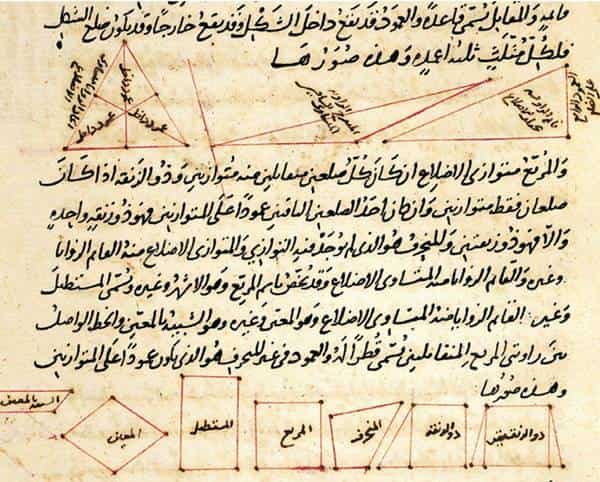 والمقابل يسمى قاعدة والعمود قد يقع داخل الشكل وقد يقع خارجا وقد يكون ضلع الشكل
فلكل مثلث ثلثة اعمدة وهذه صورها
عمود داخل
عمود داخل
عمود داخل
المتساوى الاضلاع
المنفرج الزاوية
قائم الزاوية
والمربع متوازى الاضلاع ان كان كل ضلعين متقابلين منه متوازيين وذو الزنقة اذا كان
ضلعان فقط متوازيين وان كان احد الضلعين الباقيين عمودا على المتوازيين فهو ذو زنقة واحدة
والا فهو ذو زنقتين والمنحرف هو الذى لم يوجد فيه التوازى والمتوازى الاضلاع منه القائم الزوايا
وغيره والقائم الزوايا منه المتساوى الاضلاع وقد يختص باسم المربع وهو الاشهر وغيره ويسمى المستطيل
وغير القائم الزوايا منه المتساوى الاضلاع وهو المعين وغيره وهو الشبيه بالمعين والخط الواصل
بين زاويتى المربع المتقابلتين يسمى قطرا له والعمود فى غير المنحرف هو الذى يكون عمودا على المتوازيين
وهذه صورها
الشبيه بالمعين
المعين
المستطيل
المربع
المنحرف
ذو الزنقة
ذو الزنقتين